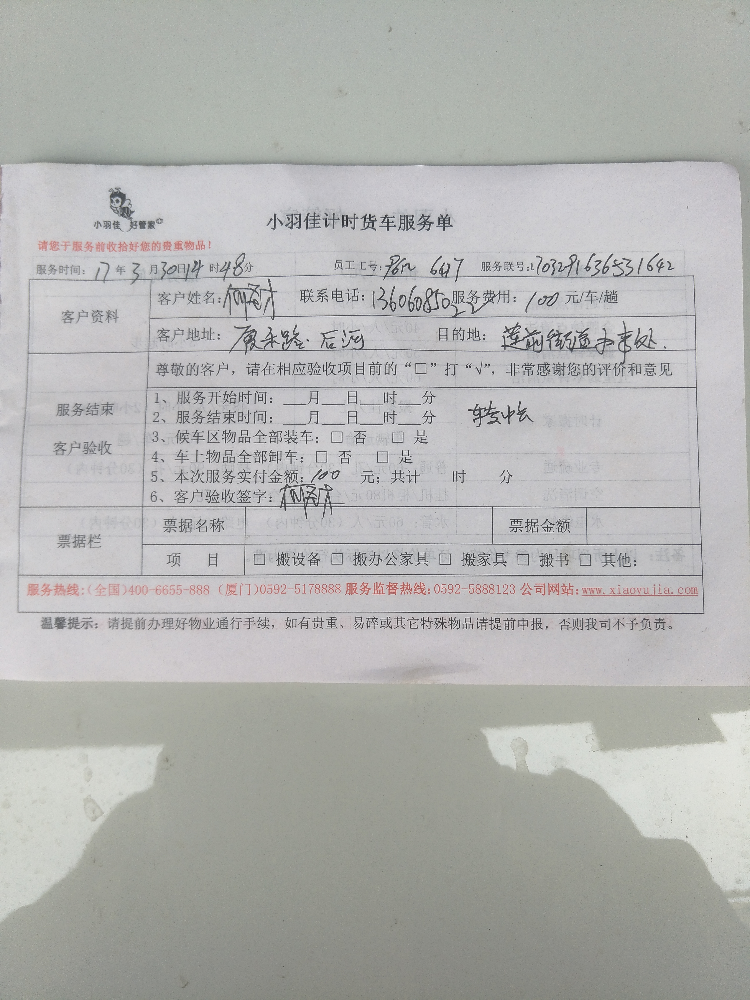 小羽佳 好管家
小羽佳计时货车服务单
请您于服务前收拾好您的贵重物品！
服务时间：17年3月30日14时48分 员工工号： 6417 服务联号：17032916365531642
客户资料
客户姓名： 联系电话：13606085022 服务费用：100元/车/趟
客户地址： 后河 目的地：莲前街道办事处.
尊敬的客户，请在相应验收项目前的“□”打“√”，非常感谢您的评价和意见
服务结束
客户验收
1、服务开始时间：___月___日___时___分
2、服务结束时间：___月___日___时___分
3、候车区物品全部装车：□ 否 □ 是
4、车上物品全部卸车：□ 否 □ 是
5、本次服务实付金额：100 元；共计 时 分
6、客户验收签字：
票据栏
票据名称 票据金额
项 目 □ 搬设备 □ 搬办公家具 □ 搬家具 □ 搬书 □ 其他：
服务热线：(全国)400-6655-888 (厦门)0592-5178888 服务监督热线：0592-5888123 公司网站：www.xiaoyujia.com
温馨提示：请提前办理好物业通行手续，如有贵重、易碎或其它特殊物品请提前申报，否则我司不予负责。